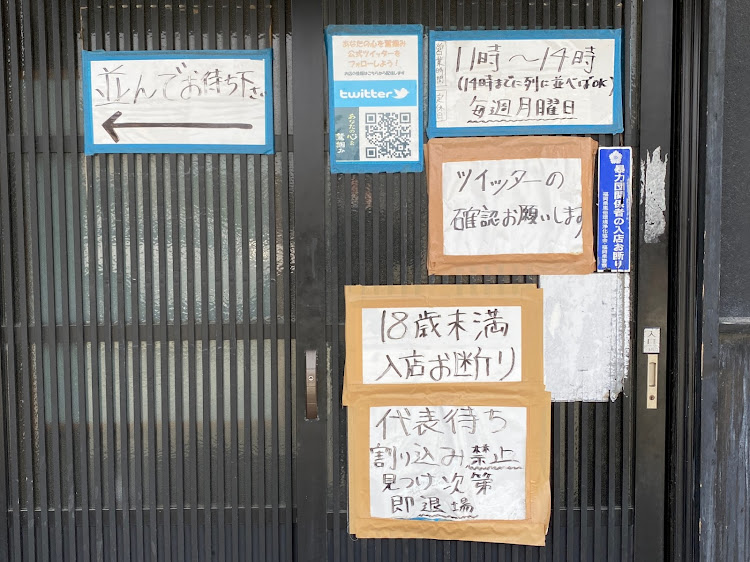 並んでお待ち下さい
あなたの心を鷲掴み
公式ツイッターを
フォローしよう!
twitter
あなたの心を
鷲掴み
営業時間
定休日
11時〜14時
(14時までに列に並べばOK)
毎週月曜日
ツイッターの
確認お願いします
暴力団関係者の入店お断り
18歳未満
入店お断り
代表待ち
割り込み禁止
見つけ次第
即退場
入口